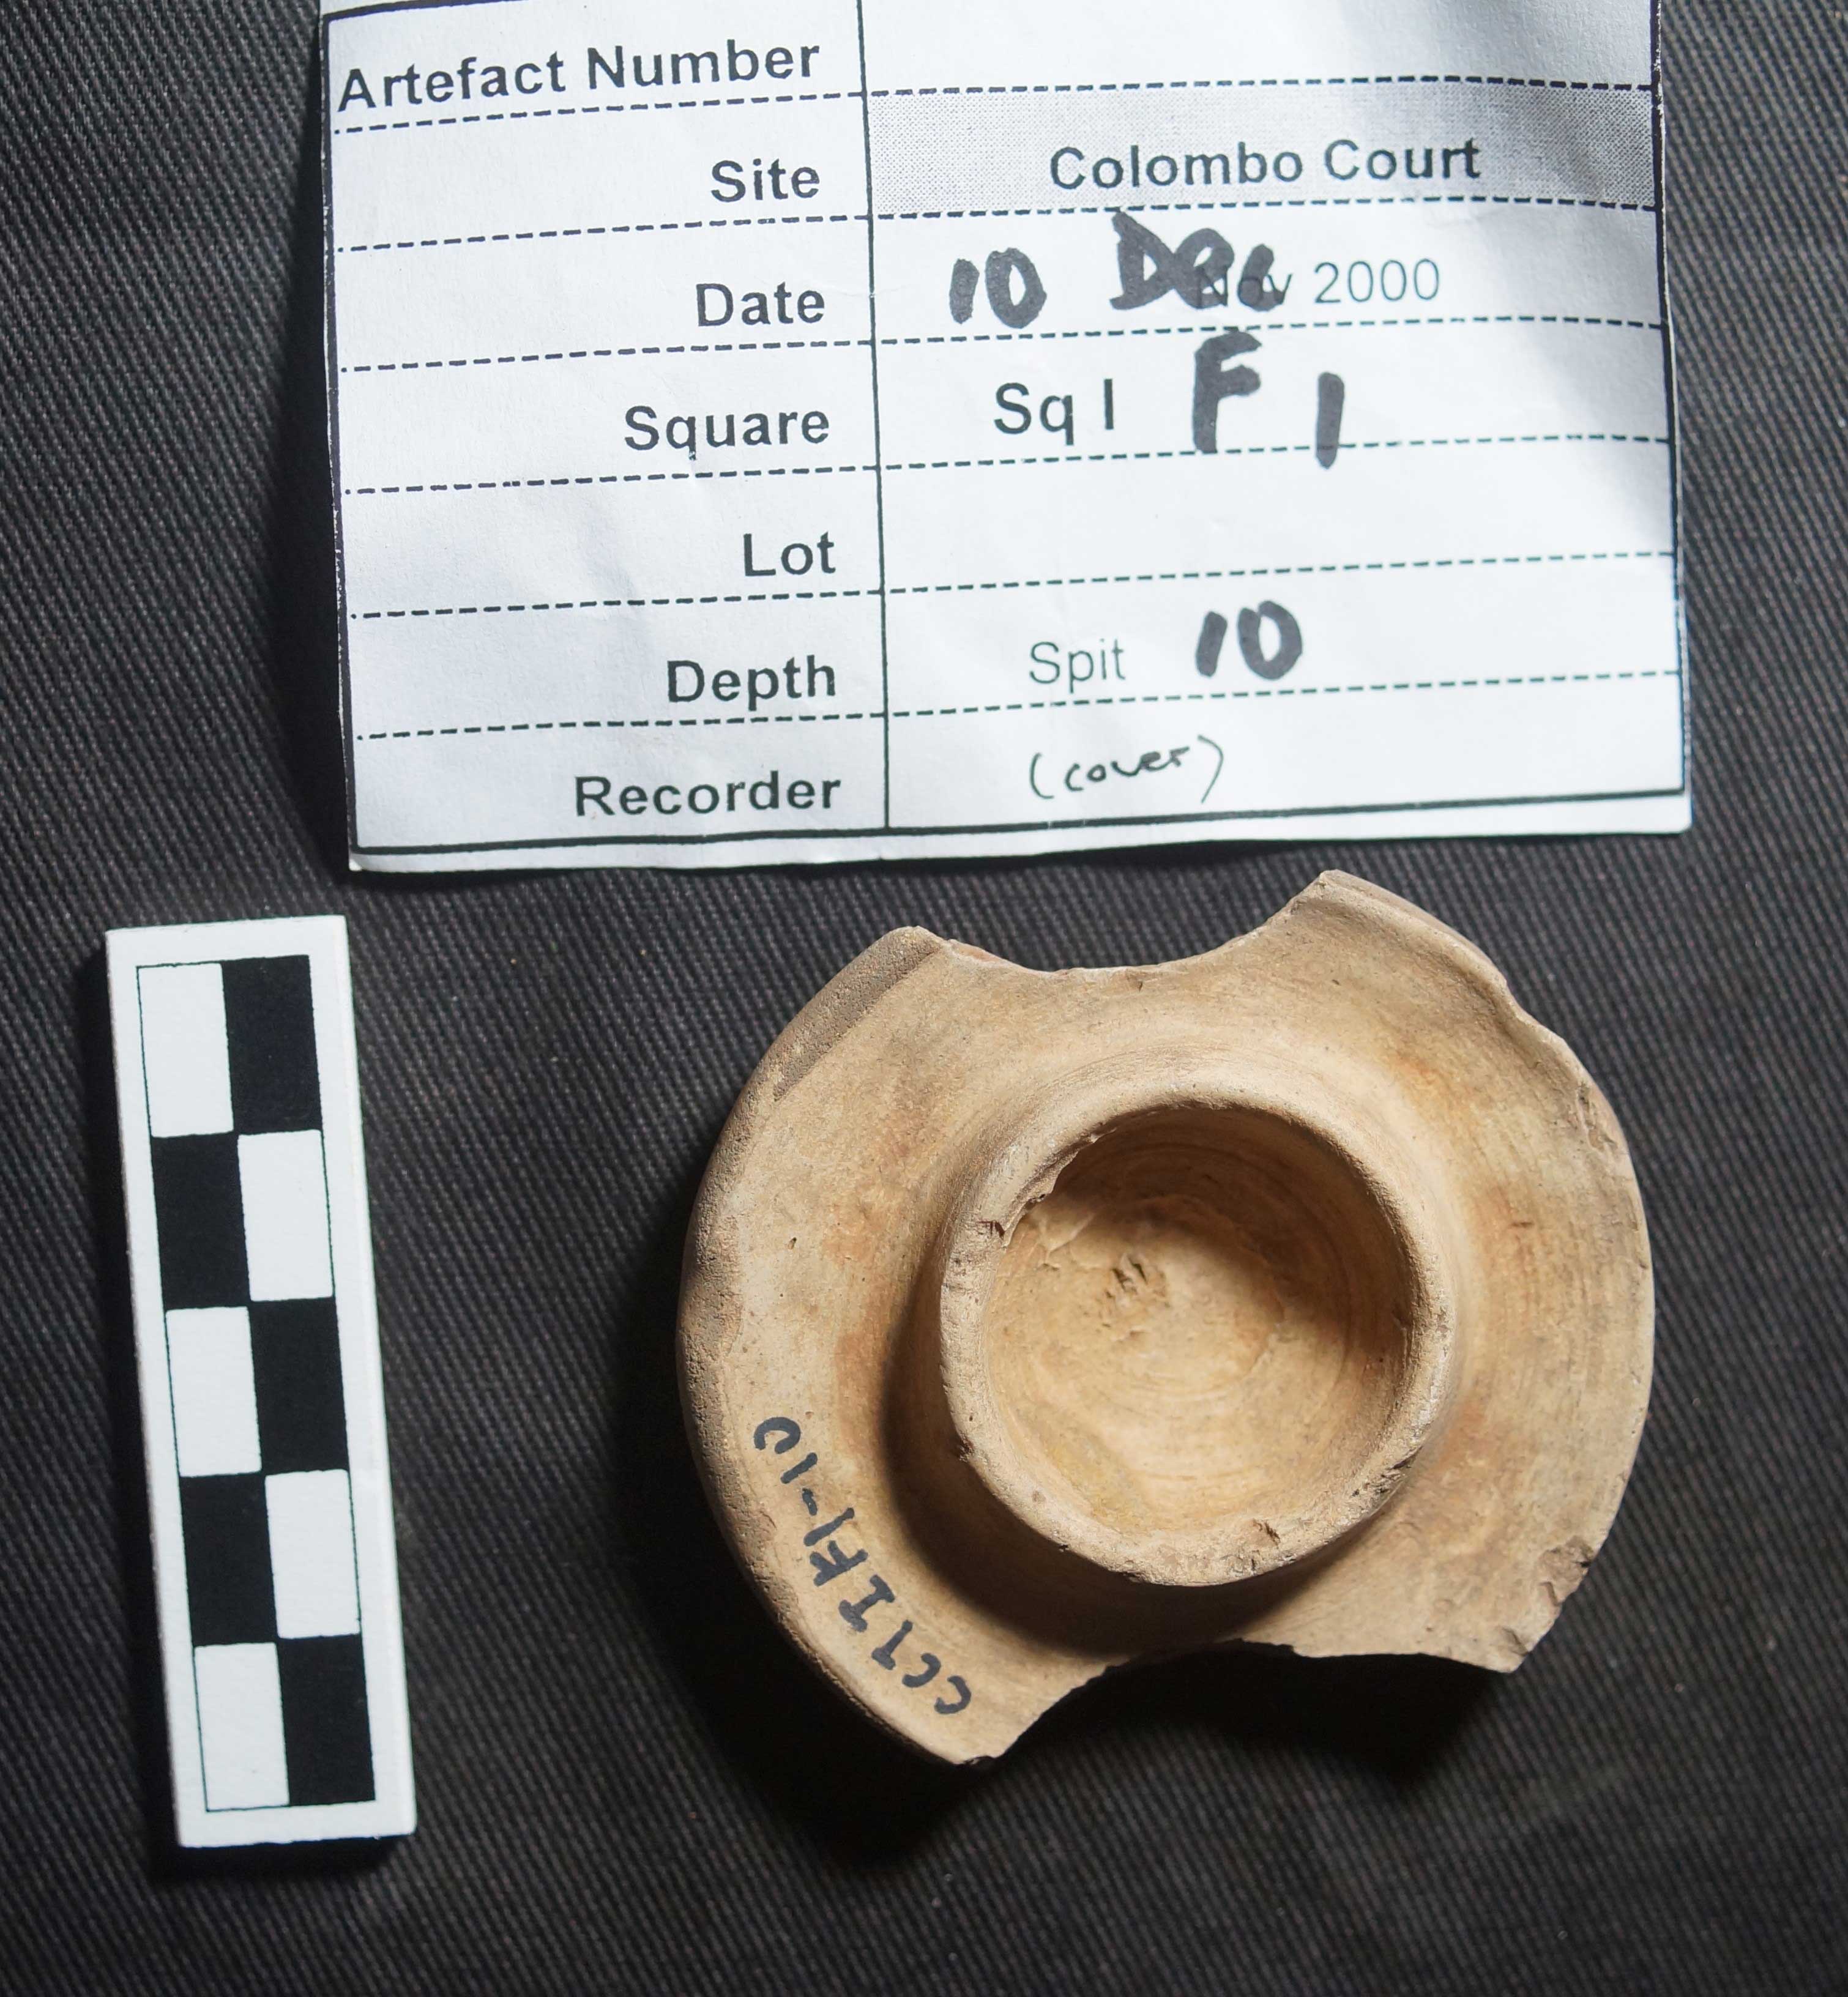 Artefact Number
Site Colombo Court
Date 10 Dec Nov 2000
Square Sq I F 1
Lot
Depth Spit 10
Recorder (cover)
CCTIF1-10